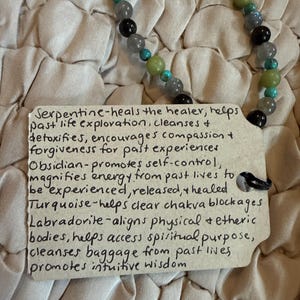 Serpentine-heals the healer, helps
past life exploration, cleanses +
detoxifies, encourages compassion +
forgiveness for past experiences
Obsidian-promotes self-control,
magnifies energy from past lives to
be experienced, released, + healed
Turquoise-helps clear chakra blockages
Labradorite-aligns physical + etheric
bodies, helps access spiritual purpose,
cleanses baggage from past lives
promotes intuitive wisdom